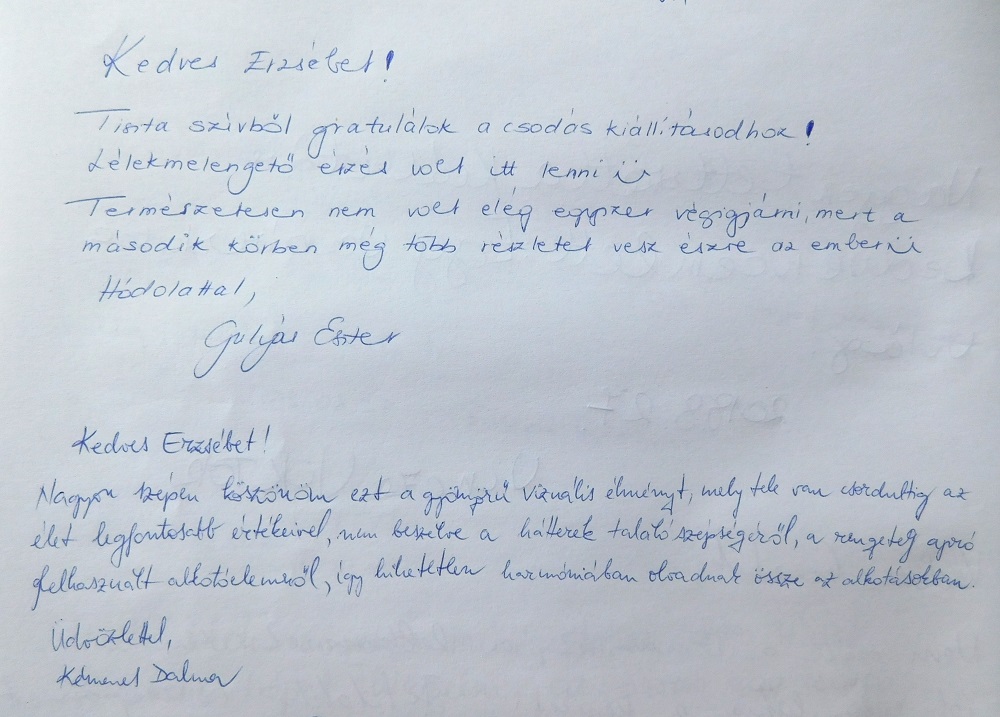 Kedves Erzsébet!
Tiszta szívből gratulálok a csodás kiállításodhoz!
Lélekmelengető érzés volt itt lenni ü
Természetesen nem volt elég egyszer végigjárni, mert a
második körben még több részletet vesz észre az ember ü
Hódolattal,
Gulyás Eszter
Kedves Erzsébet!
Nagyon szépen köszönöm ezt a gyönyörű vizuális élményt, mely tele van csordultig az
élet legfontosabb értékeivel, nem beszélve a hátterek találó szépségéről, a rengeteg apró
felhasznált alkotóelemről, így hihetetlen harmóniában olvadnak össze az alkotásokban.
Üdvözlettel,
Dalma